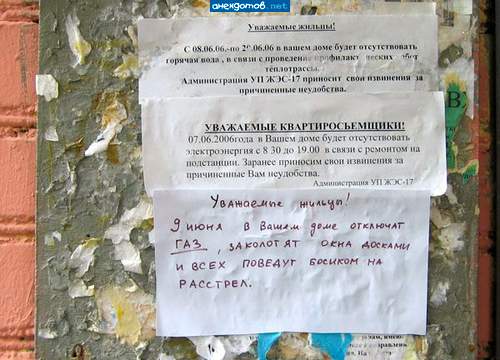 анекдотов.net
Уважаемые жильцы!
С 08.06.06.-по 20.06.06 в вашем доме будет отсутствовать
горячая вода , в связи с проведением профилактических работ
теплотрассы.
Администрация УП ЖЭС-17 приносит свои извинения за
причиненные неудобства.
УВАЖАЕМЫЕ КВАРТИРОСЪЕМЩИКИ!
07.06.2006года в Вашем доме будет отсутствовать
электроэнергия с 8 30 до 19.00 в связи с ремонтом на
подстанции. Заранее приносим свои извинения за
причиненные Вам неудобства.
Администрация УП ЖЭС-17
Уважаемые жильцы!
9 июня в Вашем доме отключат
ГАЗ , заколотят окна досками
и всех поведут босиком на
расстрел.